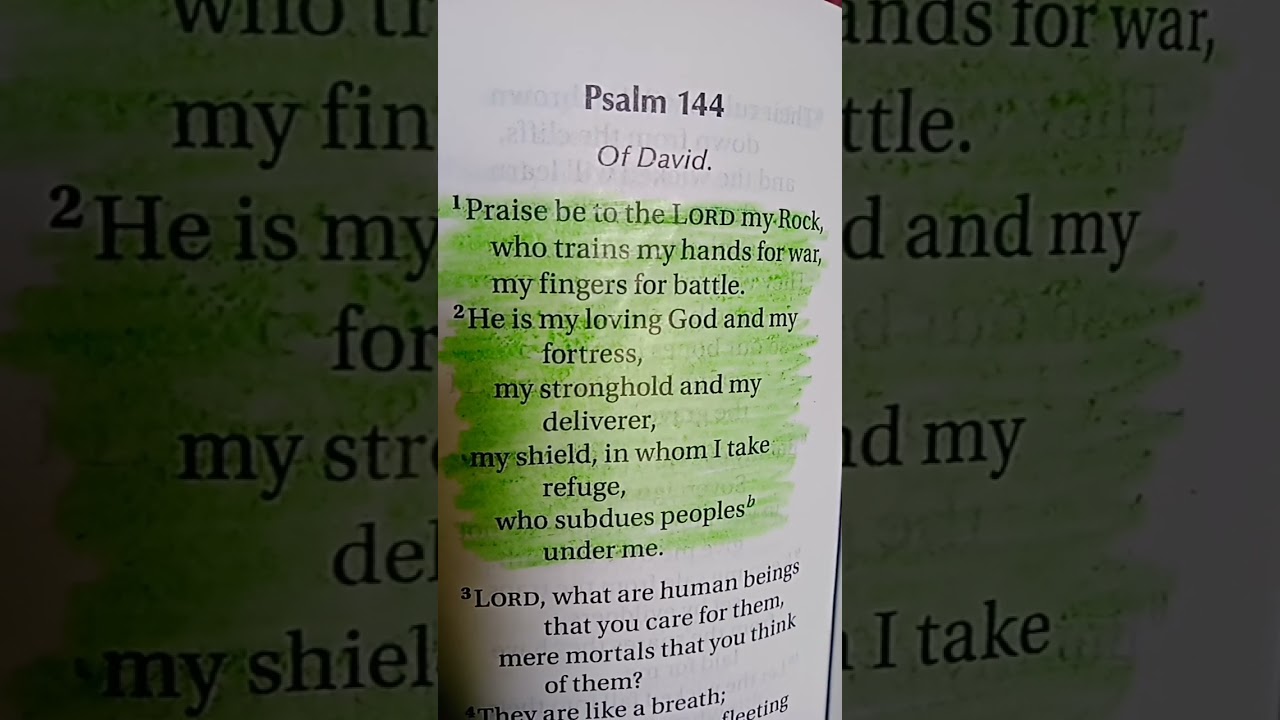 Psalm 144
Of David.
¹Praise be to the LORD my Rock,
who trains my hands for war,
my fingers for battle.
²He is my loving God and my
fortress,
my stronghold and my
deliverer,
my shield, in whom I take
refuge,
who subdues peoplesᵇ
under me.
³LORD, what are human beings
that you care for them,
mere mortals that you think
of them?
⁴They are like a breath;
fleeting